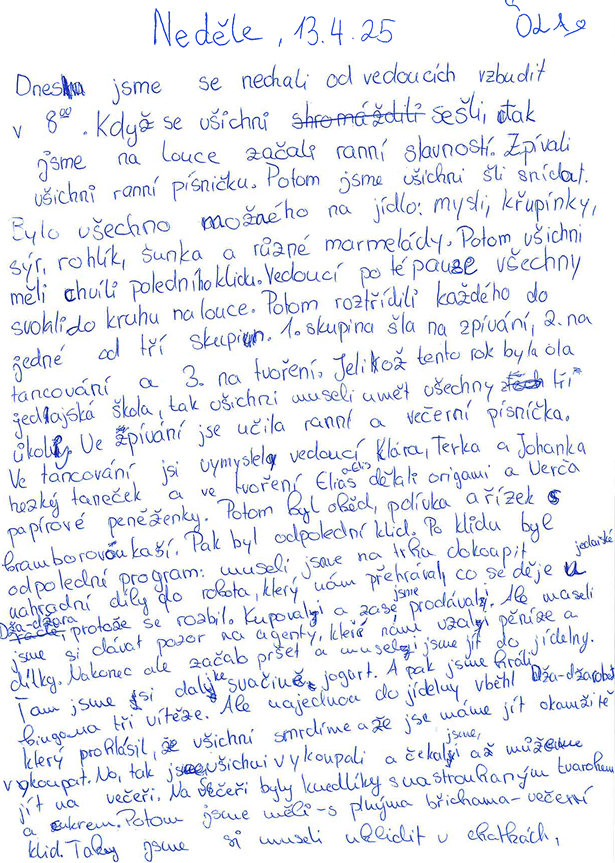 Neděle, 13.4.25
Dnes jsme se nechali od vedoucích vzbudit
v 8⁰⁰. Když se všichni shromáždili sešli, tak
jsme na louce začali ranní slavností. Zpívali
všichni ranní písničku. Potom jsme všichni šli snídat.
Bylo všechno možného na jídlo: mysli, křupínky,
sýr, rohlík, šunka a různé marmelády. Potom všichni
měli chvíli poledního klidu. Vedoucí po té pauze všechny
svolali do kruhu na louce. Potom roztřídili každého do
jedné od tří skupin. 1. skupina šla na zpívání, 2. na
tancování a 3. na tvoření. Jelikož tento rok byla ola
jedlajská škola, tak všichni museli umět všechny tři
úkoly. Ve zpívání jse učila ranní a večerní písníčka.
Ve tancování jsi vymyslely vedoucí Klára, Terka a Johanka
hezký taneček a ve tvoření Eliáš dělali origami a Verča
papírové peněženky. Potom byl oběd, polívka a řízek s
bramborovou kaší. Pak byl odpolední klid. Po klidu byl
odpolední program: museli jsme na trhu dokoupit jedaiské
nahradní díly do robota, který nám přehrával, co se děje
Dža-džara protože se rozbil. Kupovali a zase jsme prodávali. Ale museli
jsme si dávat pozor na agenty, kteří námi vzaly peníze a
dílky. Nakonec ale začalo pršet a museli jsme jít do jídelny.
Tam jsme si dali svačinu, jogurt. A pak jsme hráli
bingo na tři vítěze. Ale najednou do jídelny vběhl Dža-džarobot
který prohlásil, že všichni smrdíme a že jse máme jít okamžitě
vykoupat. No, tak jsme, všichni vykoupali a čekali až můžeme
jít na večeři. Na večeři byly knedlíky s nastrouhaným tvarohem
a cukrem. Potom jsme měli - s plnýma břichama - večerní
klid. Taky jsme si museli uklidit v chatkách,